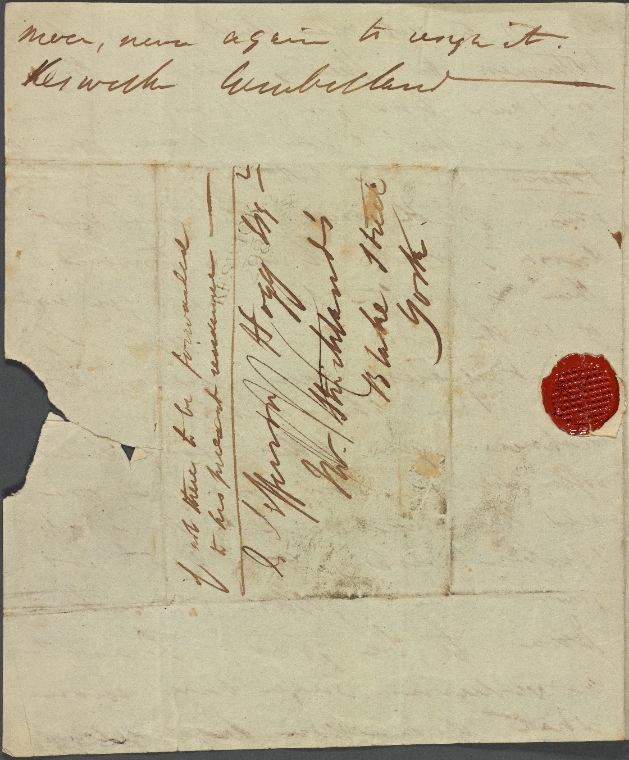 more, never again to resign it.
Keswick Cumberland
If not there to be forwarded
to his present residence
T. Jefferson Hogg Esq.
Mr. Strickland's
Blake Street
York.